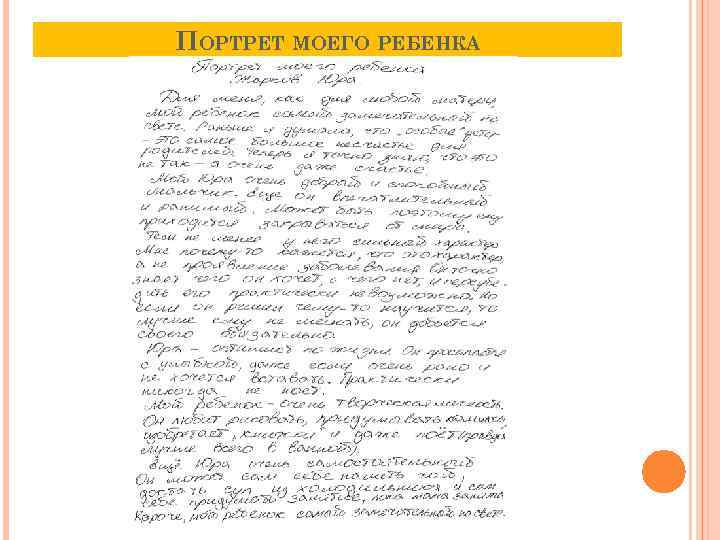 ПОРТРЕТ МОЕГО РЕБЕНКА
Портрет моего ребенка
Жарков Юра
Для меня, как для любой матери,
мой ребенок самый замечательный на
свете. Раньше я думала, что „особые" дети-
это самое большое несчастье для
родителей. Теперь я точно знаю, что это
не так – я очень даже счастье.
Мой Юра очень добрый и спокойный
мальчик. Еще он впечатлительный
и ранимый. Может быть поэтому ему
приходится закрываться от мира.
Тем не менее у него сильный характер
Мне почему то кажется, что это характер
а не проявление заболевания. Он точно
знает чего он хочет, а чего нет, и переубе-
дить его практически невозможно. Но
если он решил чему-то научится, то
лучше ему не мешать, он добьется
своего обязательно.
Юра – оптимист по жизни. Он просыпается
с улыбкой, даже если очень рано и
не хочется вставать. Практически
никогда не ноет.
Мой ребенок – очень творческая личность.
Он любит рисовать, придумывать
изобретает, книжки и даже поёт (правда
лучше всего в ванной).
Ещё Юра очень самостоятельный
Он может сам себе налить чай,
достать суп из холодильника и сам
себе придумать занятие, пока мама занята
Короче, мой ребенок самый замечательный на свете.